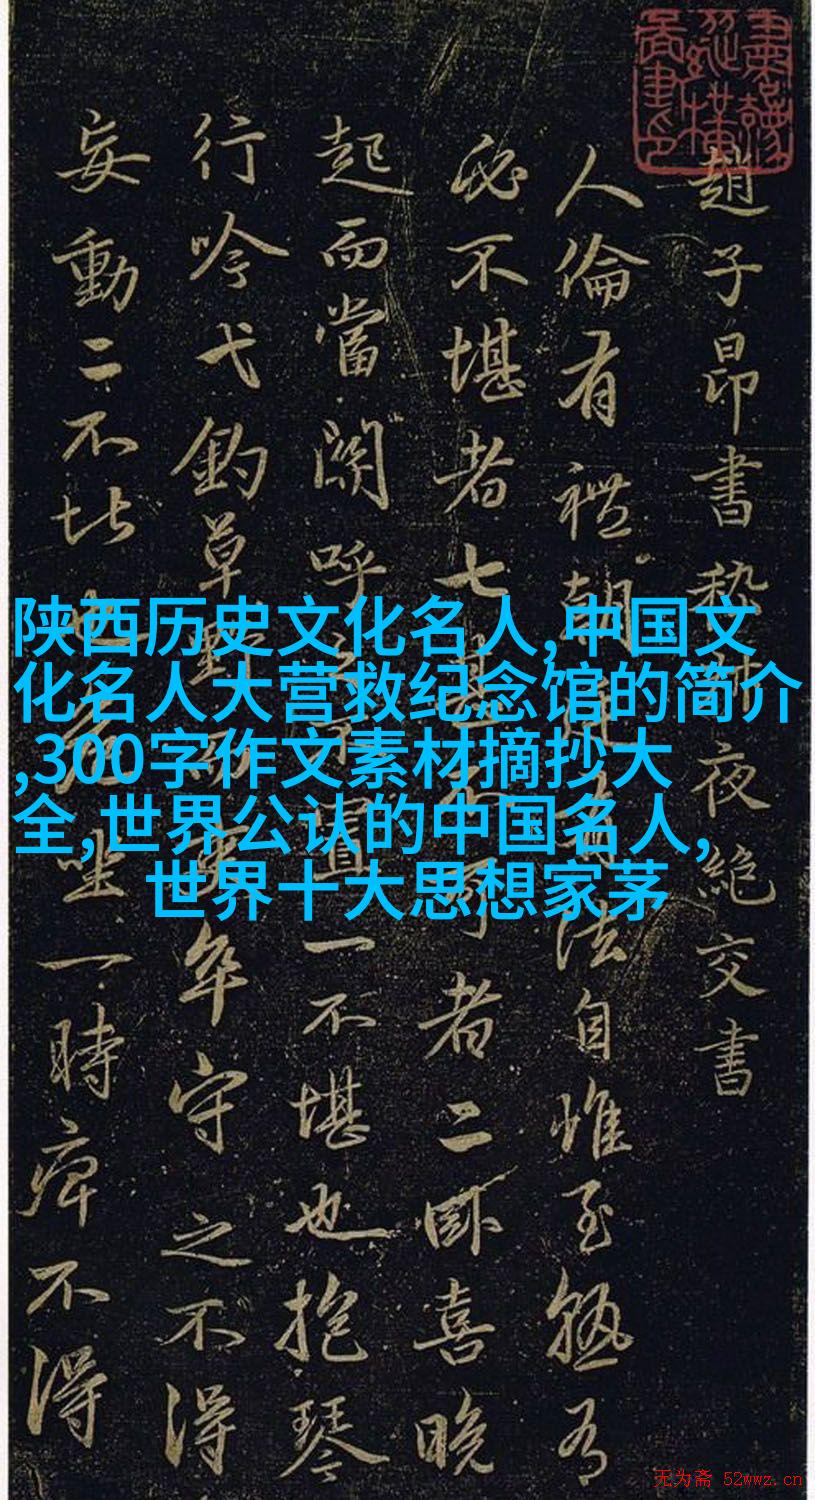 趙子昂書嵇叔夜絕交書
人倫有禮朝廷有法自惟至熟有
必不堪者七甚不可者二卧喜晚
起而當關呼之不置一不堪也抱琴
行吟弋釣草野而吏卒守之不得
妄動二不也危坐一時痺不得
陕西历史文化名人,中国文
化名人大营救纪念馆的简介
,300字作文素材摘抄大
全,世界公认的中国名人,
世界十大思想家茅
无为斋 52wwz.cn